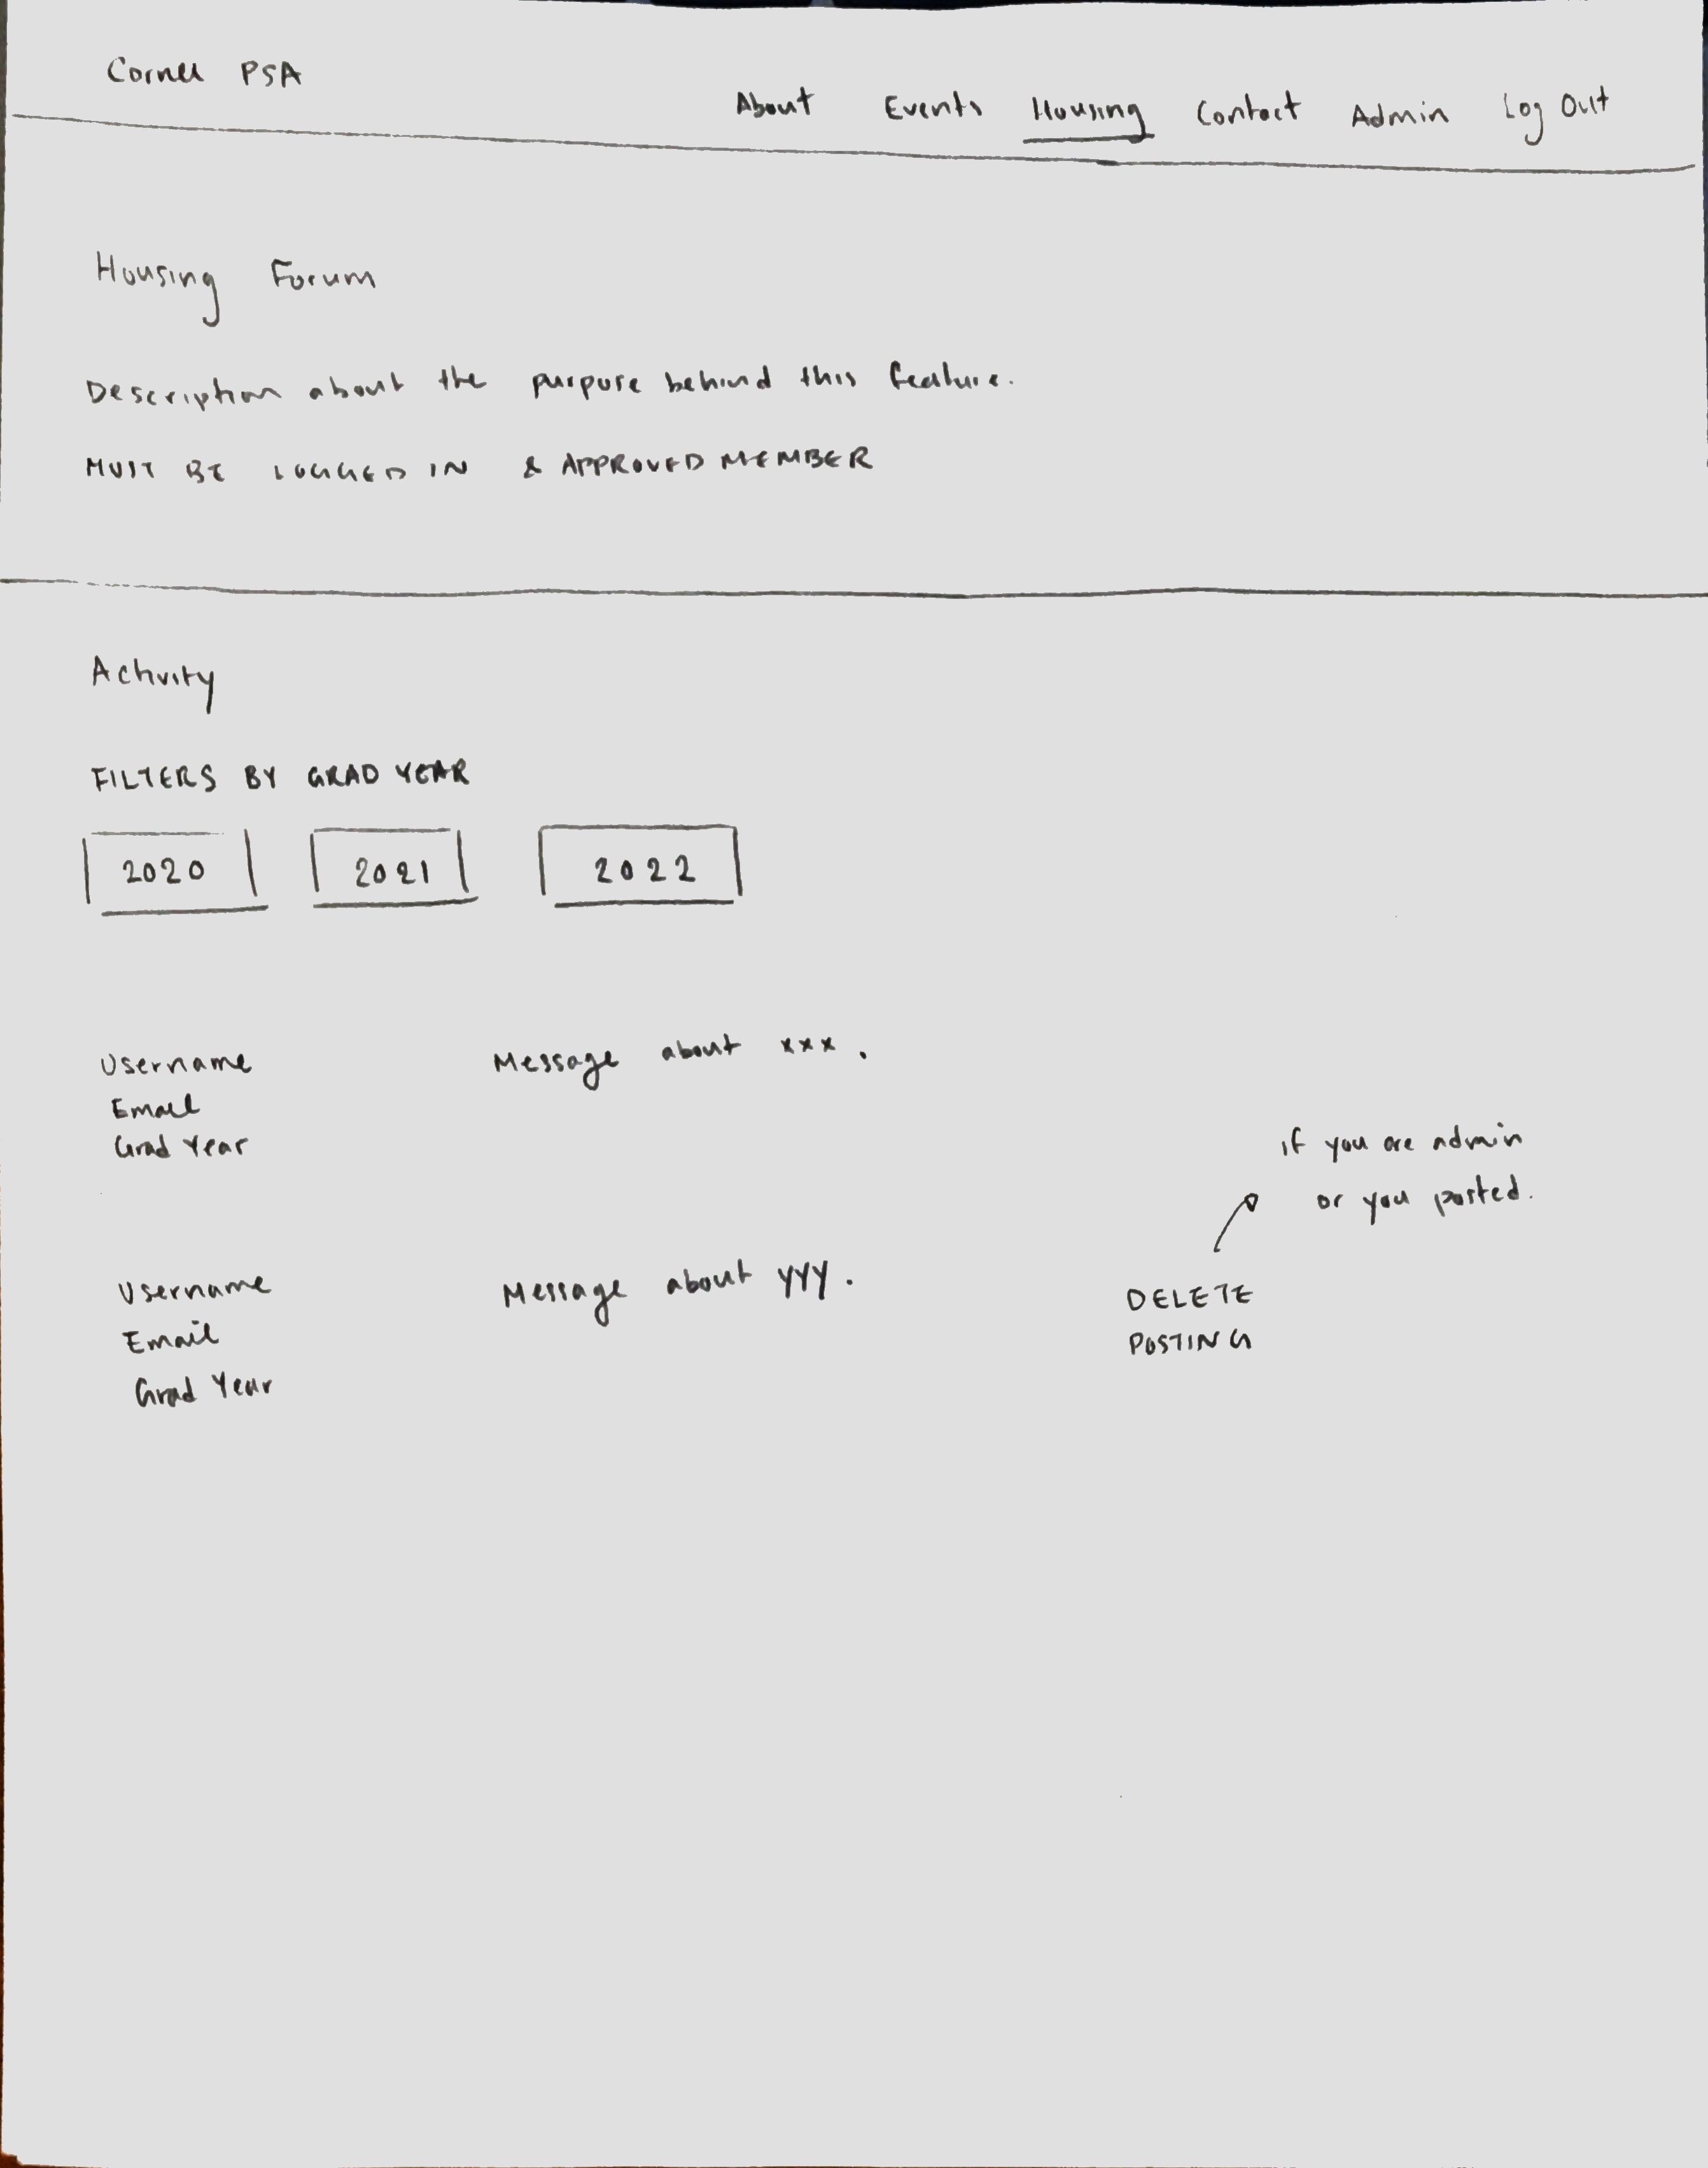 Cornell PSA
About Events Housing Contact Admin Log Out
Housing Forum
Description about the purpose behind this feature.
MUST BE LOGGED IN & APPROVED MEMBER
Activity
FILTERS BY GRAD YEAR
2020 2021 2022
Username Message about xxx.
Email
Grad Year
if you are admin
or you posted.
Username Message about yyy. DELETE
Email POSTING
Grad Year